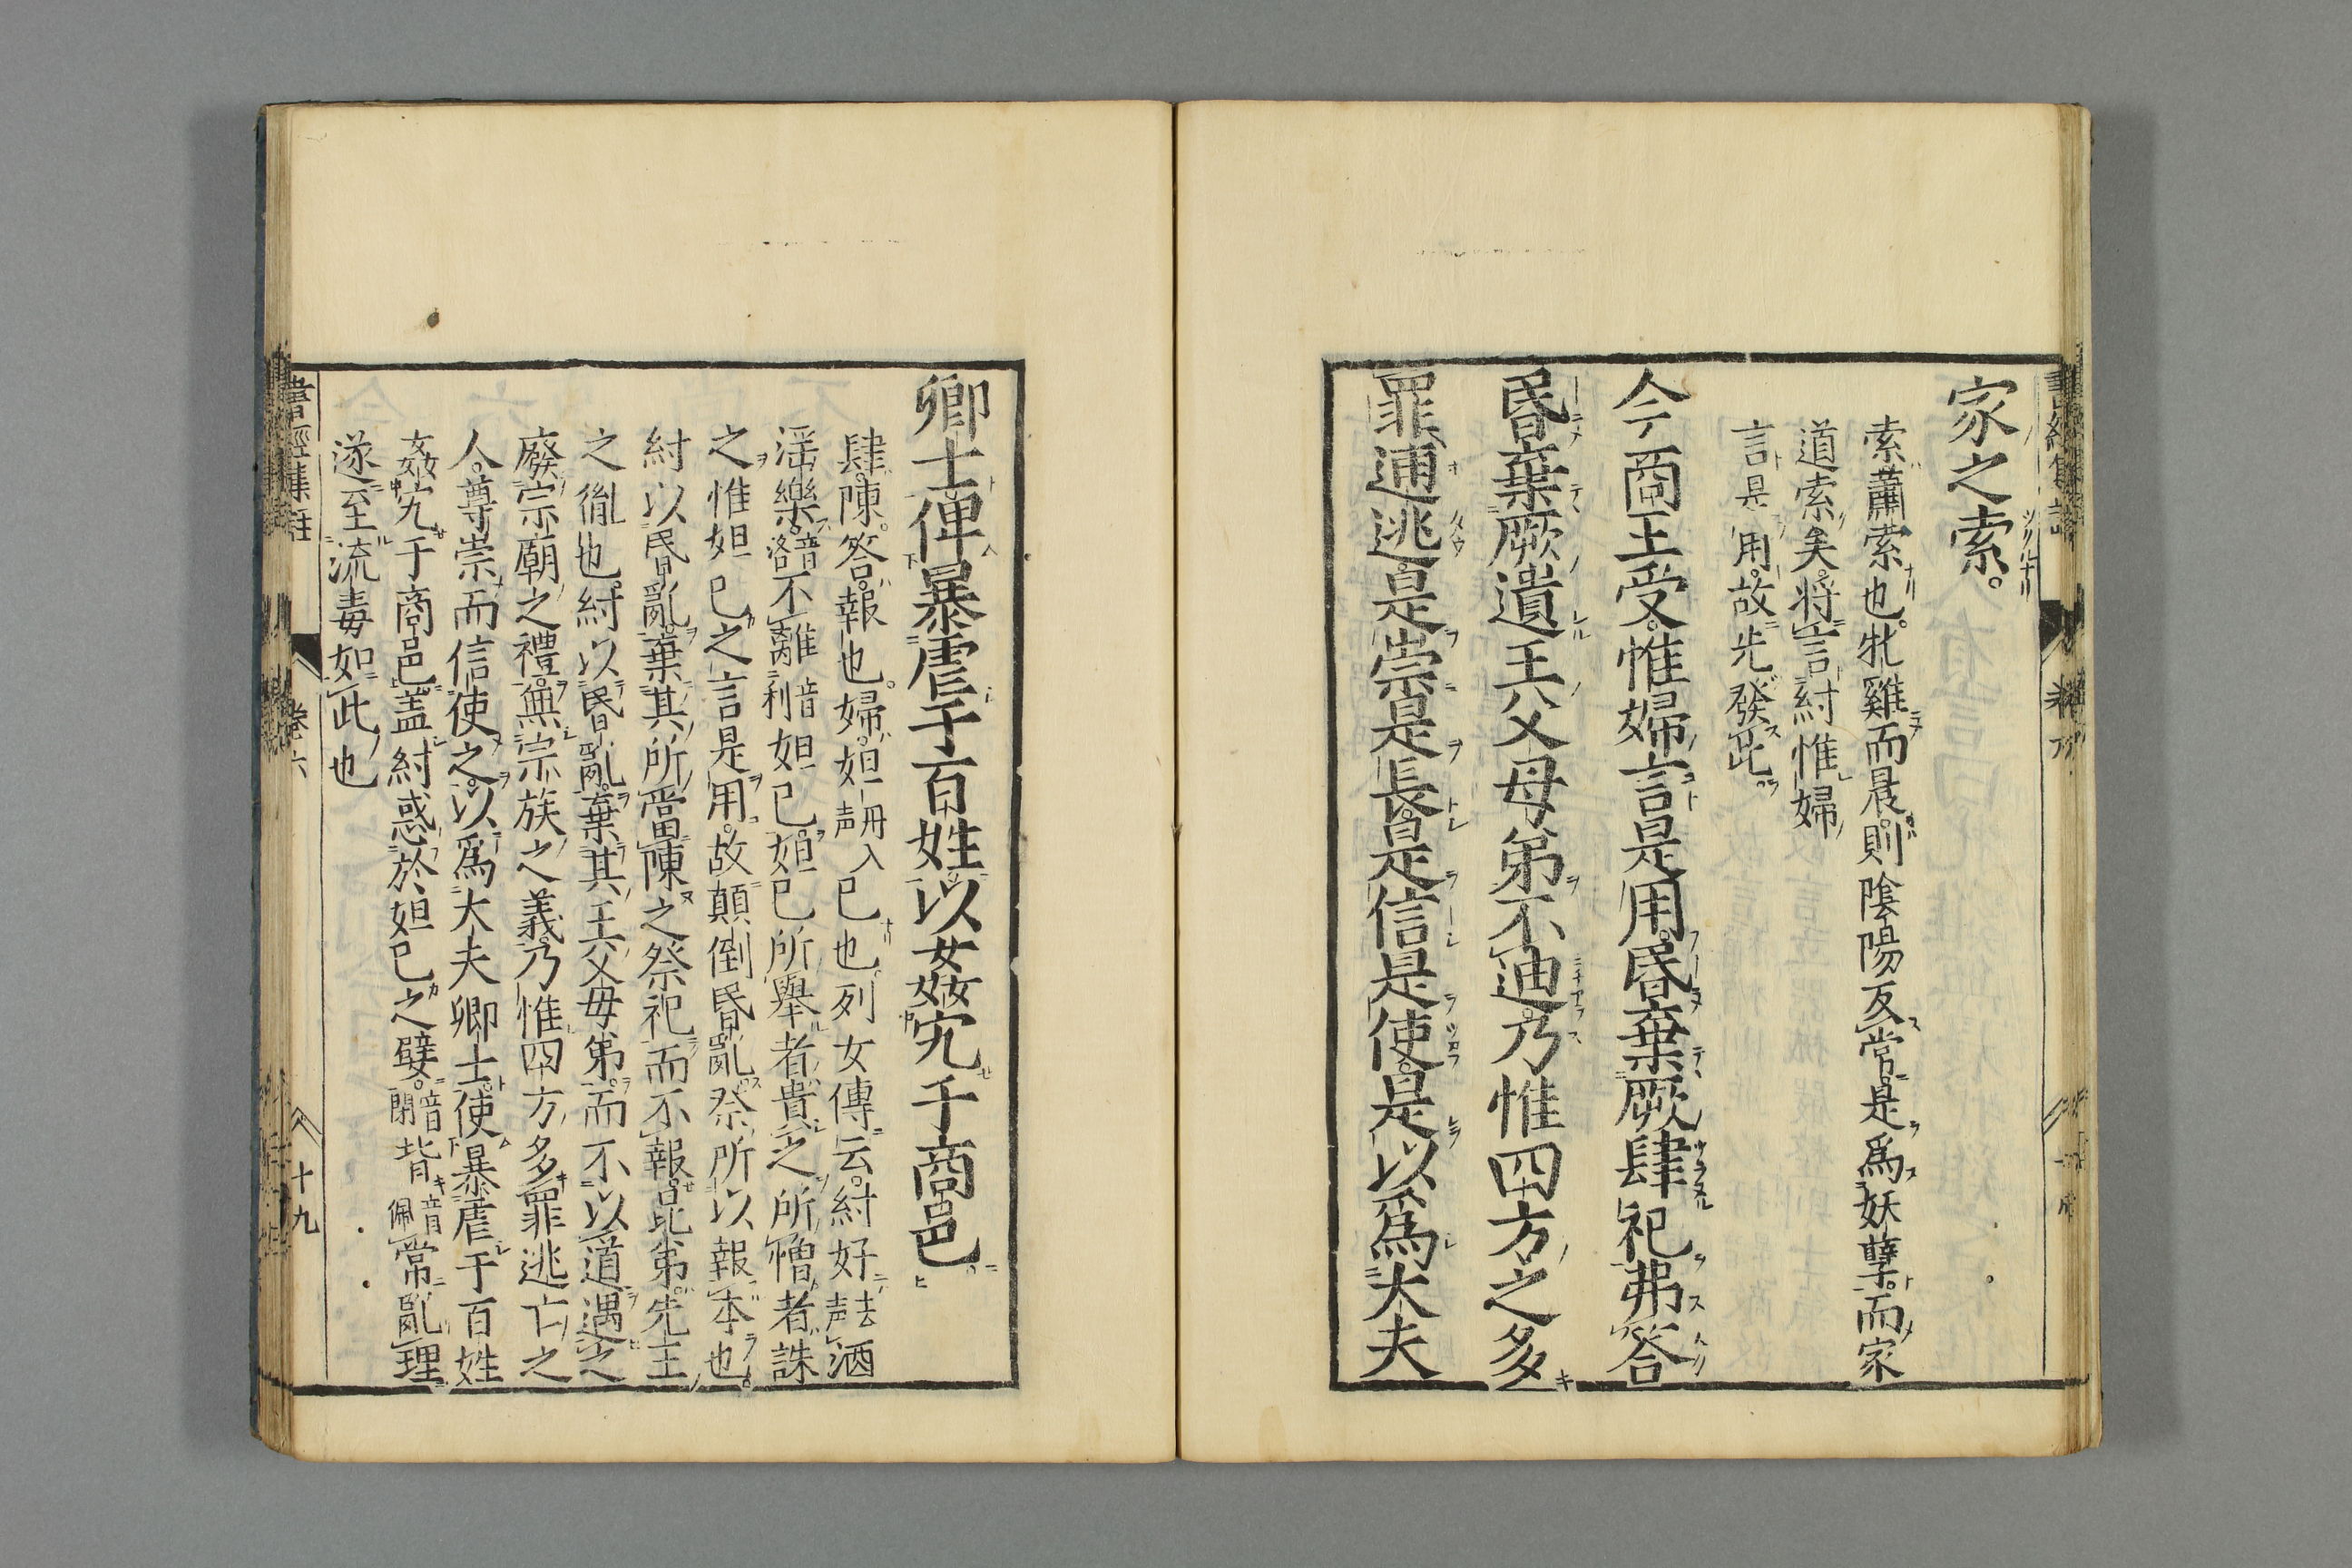 家之索。
索蕭索也。牝雞而晨。則陰陽反常。是爲妖孽。而家
道索矣。将言紂惟婦
言是用。故先發此
今商王受。惟婦言是用。昏棄厥肆祀弗答
昏棄厥遺王父母弟不迪。乃惟四方之多
罪逋逃。是崇是長。是信是使。是以爲大夫
卿士。俾暴虐于百姓。以姦宄于商邑。
肆。陳。答。報也。婦。妲冊入声己也。列女傳云。紂好去声酒
滛樂。音洛不離音利妲己。妲己所舉者貴之。所憎者誅
之。惟妲己之言是用。故顛倒昏亂。祭所以報本也。
紂以昏亂。棄其所當陳之祭祀而不報。昆弟。先王
之胤也。紂以昏亂。棄其王父母弟。而不以道遇之
廢宗廟之禮。無宗族之義。乃惟四方多罪逃亡之
人。尊崇而信使之。以爲大夫卿士。使暴虐于百姓
姦宄于商邑。蓋紂惑於妲己之嬖。音閉背音佩常亂理
遂至流毒如此也
書經集註
卷六
十九